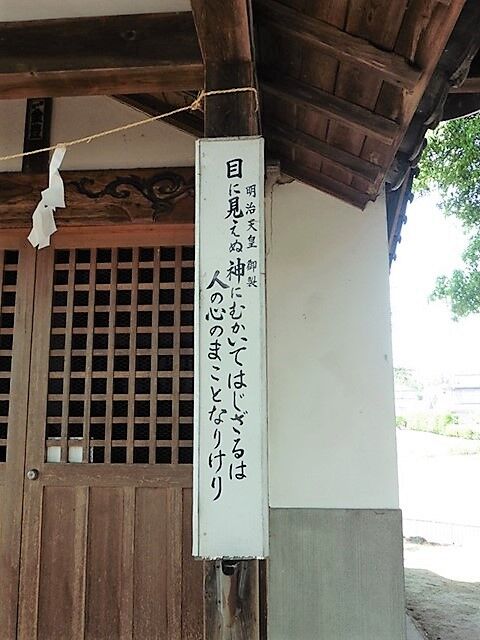 明治天皇 御製
目に見えぬ神にむかいてはじざるは
人の心のまことなりけり